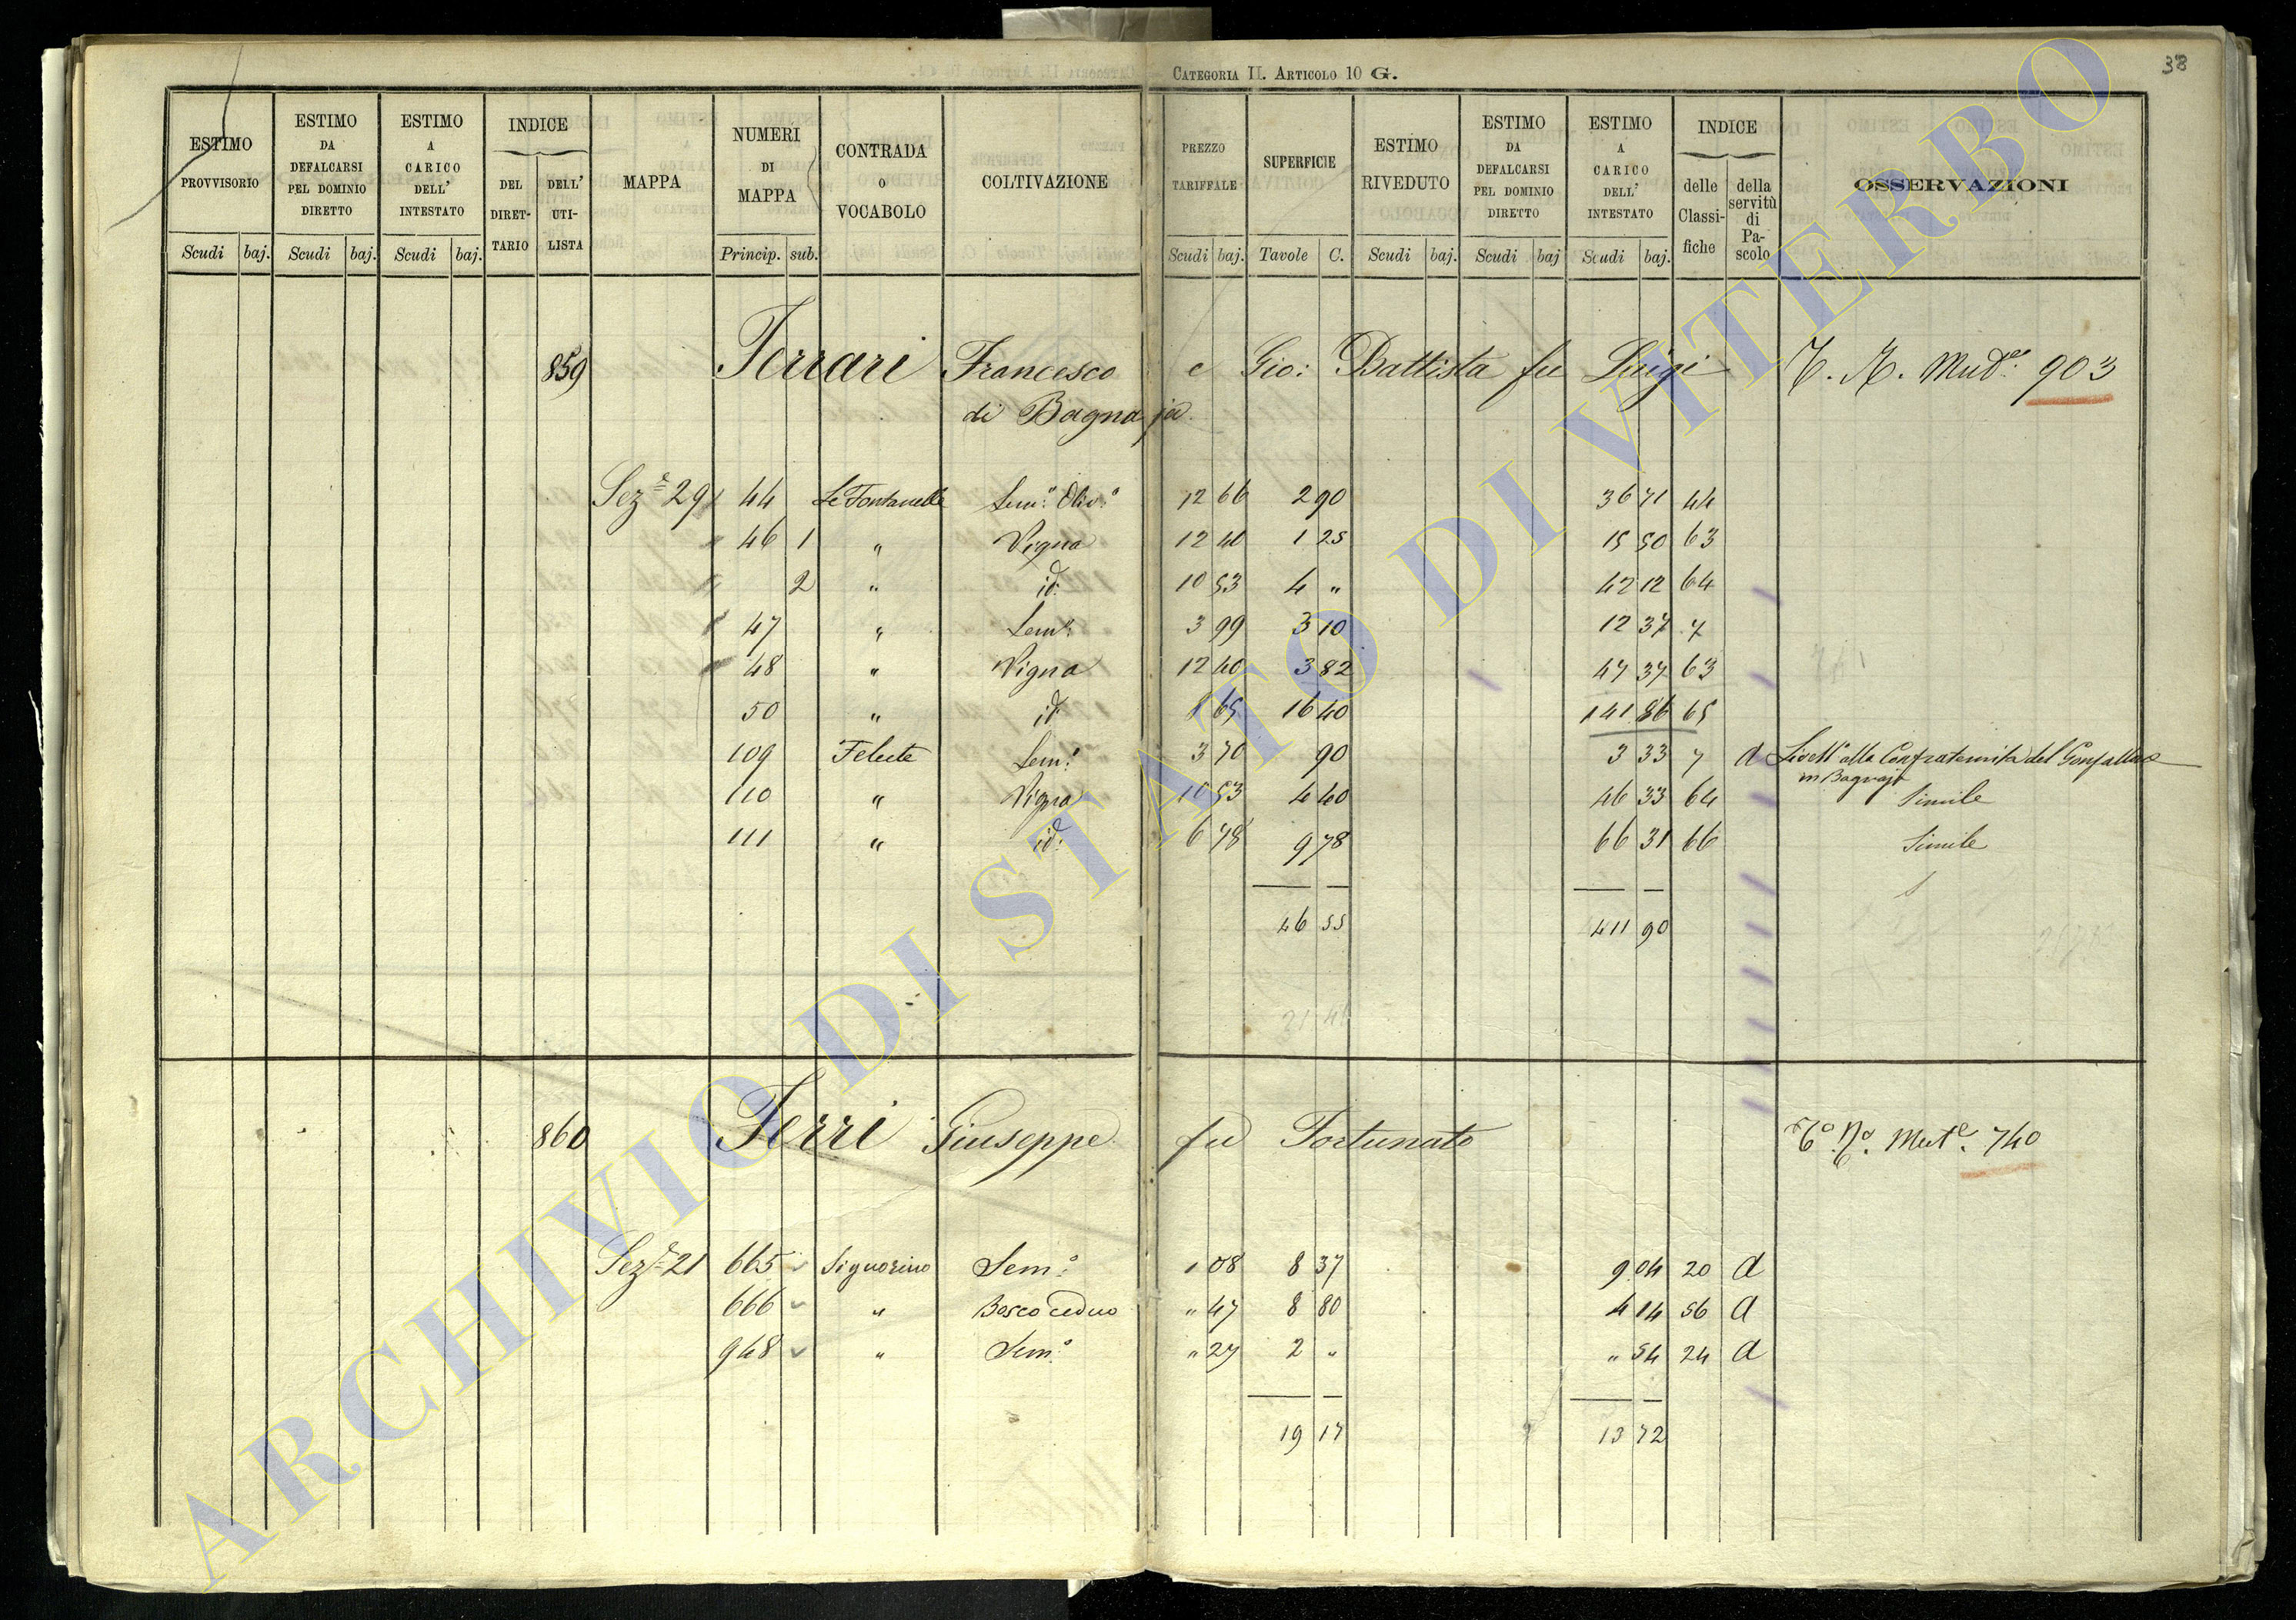 38
CATEGORIA II. ARTICOLO 10 G.
ESTIMO PROVVISORIO
ESTIMO DA DEFALCARSI PEL DOMINIO DIRETTO
ESTIMO A CARICO DELL' INTESTATO
INDICE
DEL DIRET-TARIO
DELL' UTI-LISTA
MAPPA
NUMERI DI MAPPA
CONTRADA O VOCABOLO
COLTIVAZIONE
PREZZO TARIFFALE
SUPERFICIE
ESTIMO RIVEDUTO
ESTIMO DA DEFALCARSI PEL DOMINIO DIRETTO
ESTIMO A CARICO DELL' INTESTATO
INDICE
delle Classi-fiche
della servitù di Pa-scolo
OSSERVAZIONI
Scudi baj. Scudi baj. Scudi baj. Princip. sub. Scudi baj. Tavole C. Scudi baj. Scudi baj Scudi baj.
859 Ferrari Francesco e Gio: Battista fu Luigi 903
di Bagnaja
Sez.e 29 44 Le Fontanelle Sem.o Oliv.o 12 66 2 90 36 71 44
46 1 " Vigna 12 40 1 25 15 50 63
2 " id. 10 53 4 " 42 12 64
47 " Sem.o 3 99 3 10 12 37 7
48 " Vigna 12 40 3 82 47 37 63
50 " id. 8 65 16 40 141 86 65
109 Felcete Sem.o 3 70 90 3 33 7 d Livell.o alla Confraternita del Gonfalone
in Bagnaja
110 " Vigna 10 53 4 40 46 33 64 Simile
111 " id. 6 78 9 78 66 31 66 Simile
46 55 411 90
860 Ferri Giuseppe fu Fortunato 740
Sez.e 21 665 Signorino Sem.o 1 08 8 37 9 04 20 d
666 " Bosco ceduo " 47 8 80 4 14 56 d
948 " Sem.o " 27 2 " " 54 24 d
19 17 13 72
ARCHIVIO DI STATO DI VITERBO